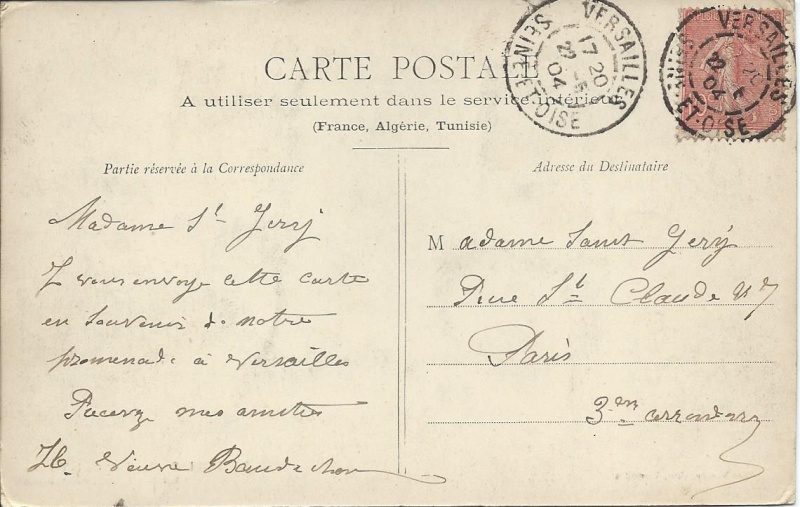 CARTE POSTALE
A utiliser seulement dans le service intérieur
(France, Algérie, Tunisie)
VERSAILLES
17 20
22 - 5
04
SEINE-ET-OISE
VERSAILLES
22
04
SEINE-ET-OISE
Partie réservée à la Correspondance
Madame St
Je vous envoye cette carte
en Souvenir de notre
promenade à Versailles
Recevez mes amitiés
Veuve
Adresse du Destinataire
Madame Saint Gery
Rue St Claude N 7
Paris
3em